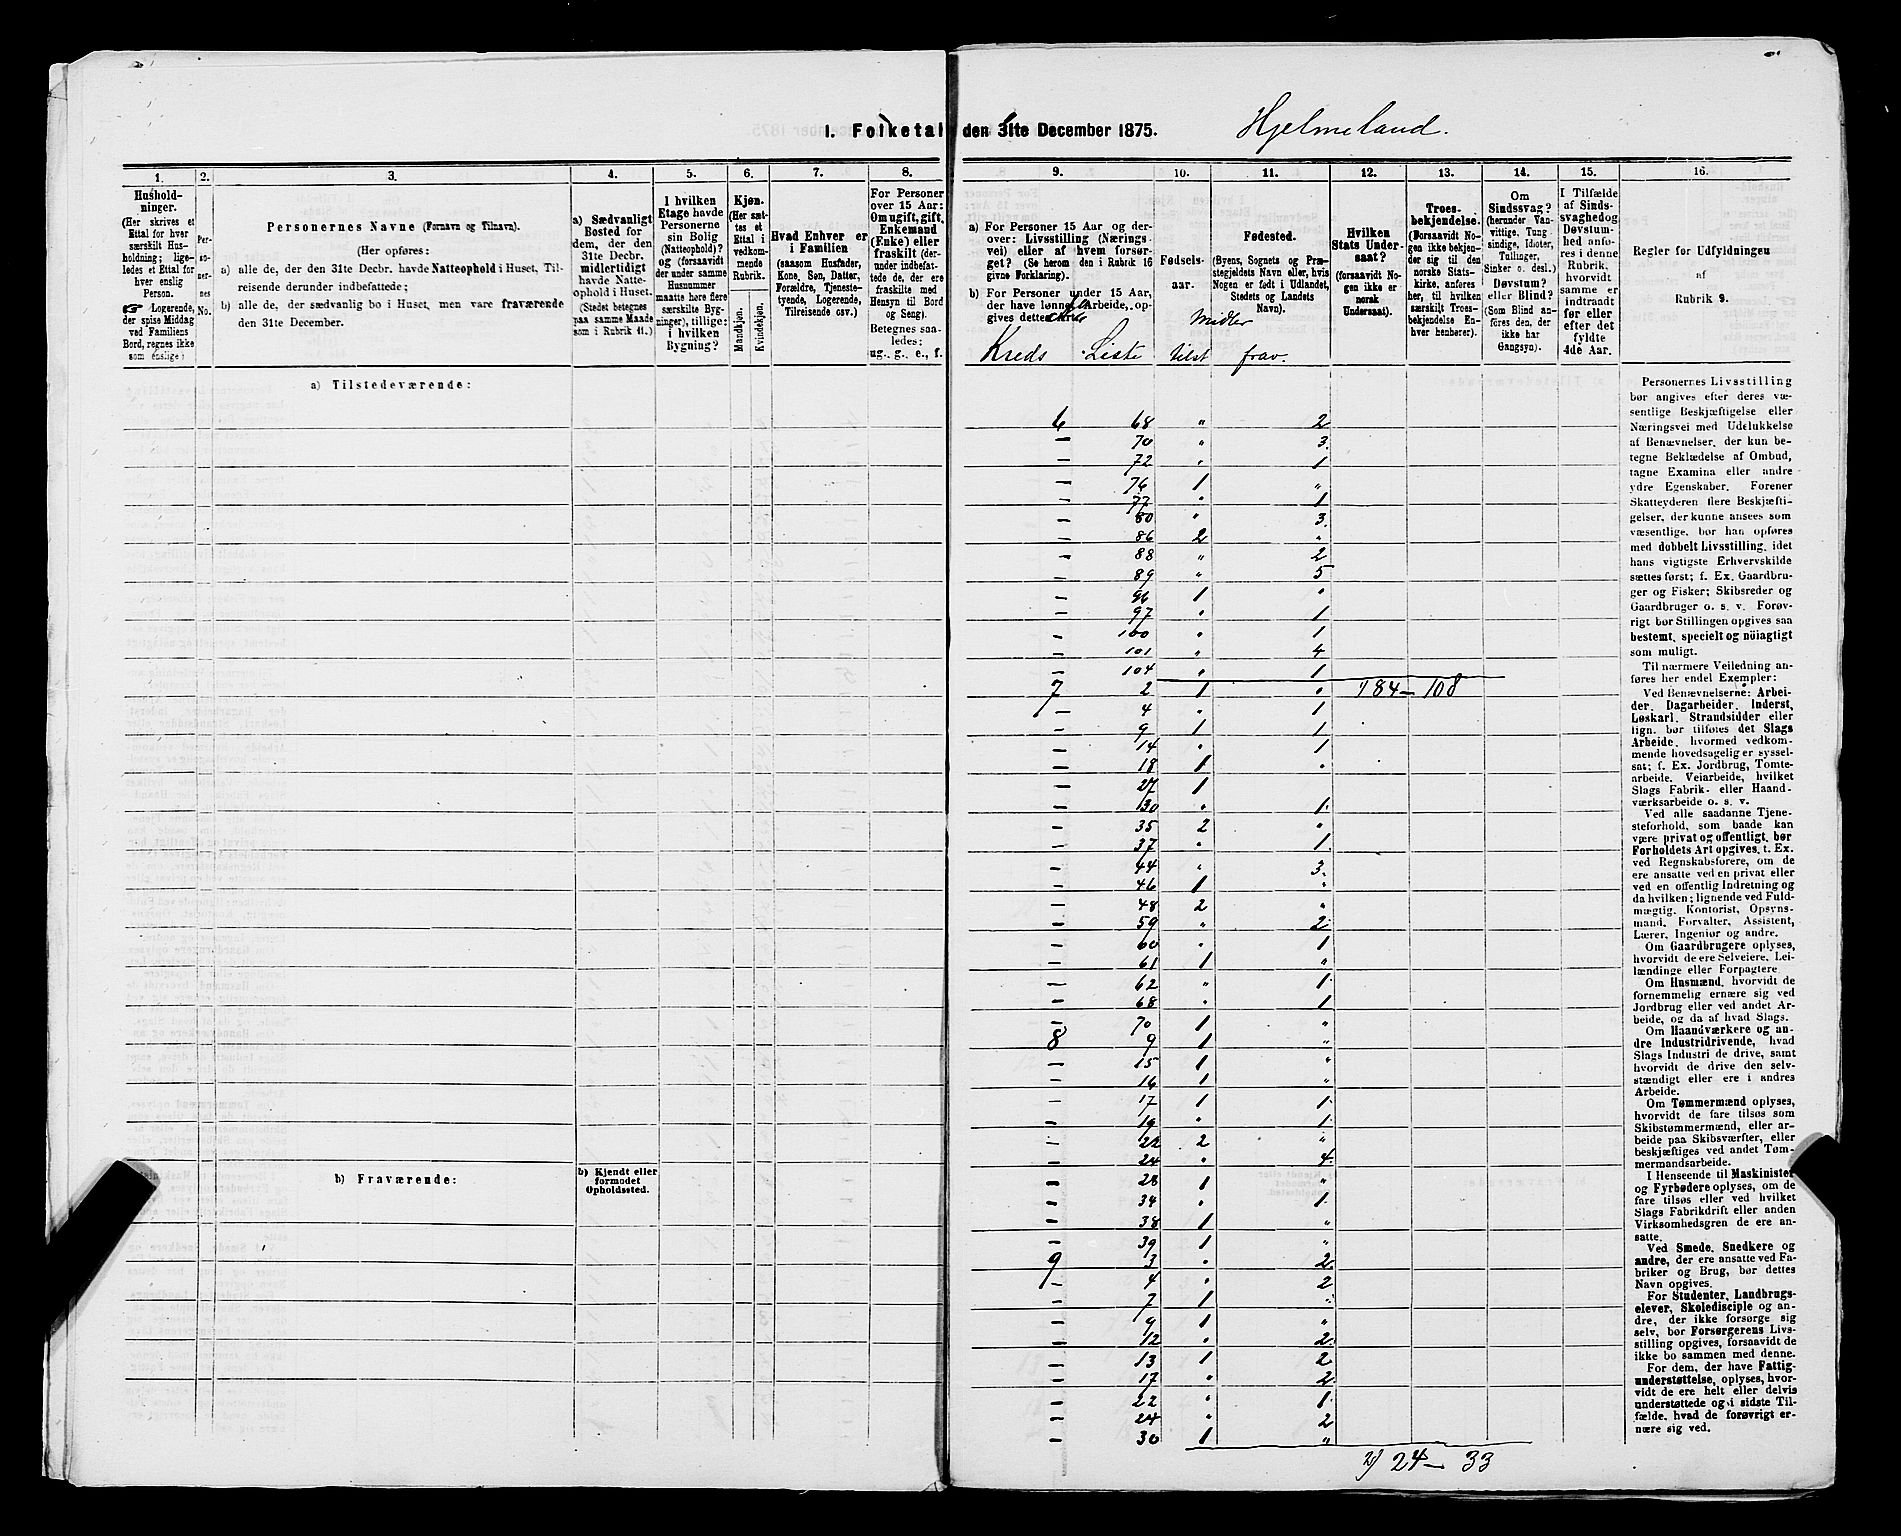 I. Folketal den 31te December 1875.
Hjelmeland.
1.
Hushold-
ninger.
(Her skrives et
Ettal for hver
særskilt Hus-
holdning; lige-
ledes et Ettal for
hver enslig
Person.
☛ Logerende,
der spise Middag
ved Familiens
Bord, regnes ikke
som enslige.)
2.
Per-
so-
ner-
nes
No.
3.
Personernes Navne (Fornavn og Tilnavn).
(Her opføres:
a) alle de, der den 31te Decbr. havde Natteophold i Huset, Til-
reisende derunder indbefattede;
b) alle de, der sædvanlig bo i Huset, men vare fraværende
den 31te December.
4.
a) Sædvanligt
Bosted for
dem, der den
31te Decbr.
midlertidigt
havde Natte-
ophold i Huset.
(Stedet betegnes
paa samme Maade
som i Rubrik 11.)
5.
I hvilken
Etage havde
Personerne
sin Bolig
(Natteophold)?
og (forsaavidt
der under samme
Husnummer
maatte høre flere
særskilte Byg-
ninger), tillige:
i hvilken
Bygning?
6.
Kjøn.
(Her sæt-
tes et
Ettal i
vedkom-
mende
Rubrik.
Mandkjøn.
Kvindekjøn.
7.
Hvad Enhver er
i Familien
(saasom Husfader,
Kone, Søn, Datter,
Forældre, Tjeneste-
tyende, Logerende,
Tilreisende osv.)
8.
For Personer
over 15 Aar:
Om ugift, gift,
Enkemand
(Enke) eller
fraskilt (der-
under indbefat-
tede de, der ere
fraskilte med
Hensyn til Bord
og Seng).
Betegnes saa-
ledes:
ug., g., e., f.
9.
a) For Personer 15 Aar og der-
over: Livsstilling (Nærings-
vei) eller af hvem forsør-
get? (Se herom den i Rubrik 16
givne Forklaring).
b) For Personer under 15 Aar,
der have lønnet Arbeide, op-
gives dettes
Kreds Liste
10.
Fødsels-
aar.
Midler
tilst
11.
Fødested.
(Byens, Sognets og Præ-
stegjeldets Navn eller, hvis
Nogen er født i Udlandet,
Stedets og Landets
Navn).
frav.
12.
Hvilken
Stats Under-
saat?
(forsaavidt No-
gen ikke er
norsk
Undersaat).
13.
Troes-
bekjendelse.
(Forsaavidt No-
gen ikke bekjen-
der sig til den
norske Stats-
kirke, anføres
her, til hvilken
særskilt Troes-
bekjendelse En-
hver henhører).
14.
Om
Sindssvag?
(herunder Van-
vittige, Tung
sindige, Idioter,
Tullinger,
Sinker o. desl.)
Døvstum?
eller Blind?
(Som Blind an-
føres den, der
ikke har
Gangsyn).
15.
I Tilfælde
af Sinds-
svaghed og
Døvstum-
hed anfø-
res i denne
Rubrik,
hvorvidt
samme er
indtraadt
før eller
efter det
fyldte
4de Aar.
16.
Regler for Udfyldningen
af
Rubrik 9.
a) Tilstedeværende:
b) Fraværende:
b) Kjendt eller
formodet
Opholdssted.
6 68 " 2
– 70 " 3
– 72 " 1
– 76 1 "
– 77 " 1
– 80 " 3
– 86 2 "
– 88 " 2
– 89 " 5
– 96 1 "
– 97 " 1
– 100 " 1
– 101 " 4
– 104 " 1
7 2 1 " 1) 84 – 108
– 4 " 1
– 9 1 1
– 14 " 1
– 18 1 "
– 27 1
– 30 " 1
– 35 2 "
– 37 " 1
– 44 " 3
– 46 1 "
– 48 2 "
– 59 " 2
– 60 " 1
– 61 1 "
– 62 " 1
– 68 " 1
– 70 1 "
8 9 1 "
– 15 1 "
– 16 1 "
– 17 1 1
– 19 " 1
– 22 2 "
– 24 " 4
– 28 1 "
– 34 " 1
– 38 1 "
– 39 1 "
9 3 " 2
– 4 " 2
– 7 1 "
– 9 1 "
– 12 " 2
– 13 1 2
– 17 " 2
– 22 " 1
– 24 " 2
– 30 1 "
2) 24 – 33
Personernes Livsstilling
bør angives efter deres væ-
sentlige Beskjæftigelse eller
Næringsvei med Udelukkelse
af Benævnelser, der kun be-
tegne Beklædelse af Ombud,
tagne Examina eller andre
ydre Egenskaber. Forener
Skatteyderen flere Beskjæfti-
gelser, der kunne ansees som
væsentlige, bør han opføres
med dobbelt Livsstilling, idet
hans vigtigste Erhvervskilde
sættes først; f. Ex. Gaardbru-
ger og Fisker; Skibsreder og
Gaardbruger o. s. v. Forøv-
rigt bør Stillingen opgives saa
bestemt, specielt og nøiagtigt
som muligt.
Til nærmere Veiledning an-
føres her endel Exempler:
Ved Benævnelserne: Arbei-
der, Dagarbeider, Inderst,
Løskarl, Strandsidder eller
lign. bør tilføies det Slags
Arbeide, hvormed vedkom-
mende hovedsagelig er syssel-
sat; f. Ex. Jordbrug, Tomte-
arbeide, Veiarbeide, hvilket
Slags Fabrik- eller Haand-
værksarbeide o. s. v.
Ved alle saadanne Tjene-
steforhold, som baade kan
være privat og offentligt, bør
Forholdets Art opgives, t. Ex.
ved Regnskabsførere, om de
ere ansatte ved en privat eller
ved en offentlig Indretning og
da hvilken; lignende ved Fuld-
mægtig, Kontorist, Opsyns-
mand, Forvalter, Assistent,
Lærer, Ingeniør og andre.
Om Gaardbrugere oplyses,
hvorvidt de ere Selveiere, Lei-
lændinge eller Forpagtere.
Om Husmænd, hvorvidt de
fornemmelig ernære sig ved
Jordbrug eller ved andet Ar-
beide, og da af hvad Slags.
Om Haandværkere og an-
dre Industridrivende, hvad
Slags Industri de drive, samt
hvorvidt de drive den selv-
stændigt eller ere i andres
Arbeide.
Om Tømmermænd oplyses,
hvorvidt de fare tilsøs som
Skibstømmermænd, eller ar-
beide paa Skibsværfter, eller
beskjæftiges ved andet Tøm-
mermandsarbeide.
I Henseende til Maskinister
og Fyrbødere oplyses, om de
fare tilsøs eller ved hvilket
Slags Fabrikdrift eller anden
Virksomhedsgren de ere an-
satte.
Ved Smede, Snedkere og
andre, der ere ansatte ved Fa-
briker og Brug, bør dettes
Navn opgives.
For Studenter, Landbrugs-
elever, Skoledisciple og an-
dre, der ikke forsørge sig
selv, bør Forsørgerens Livs-
stilling opgives, forsaavidt de
ikke bo sammen med denne.
For dem, der have Fattig-
understøttelse, oplyses, hvor-
vidt de ere helt eller delvis
understøttede og i sidste Til-
fælde, hvad de forøvrigt er-
nære sig ved.